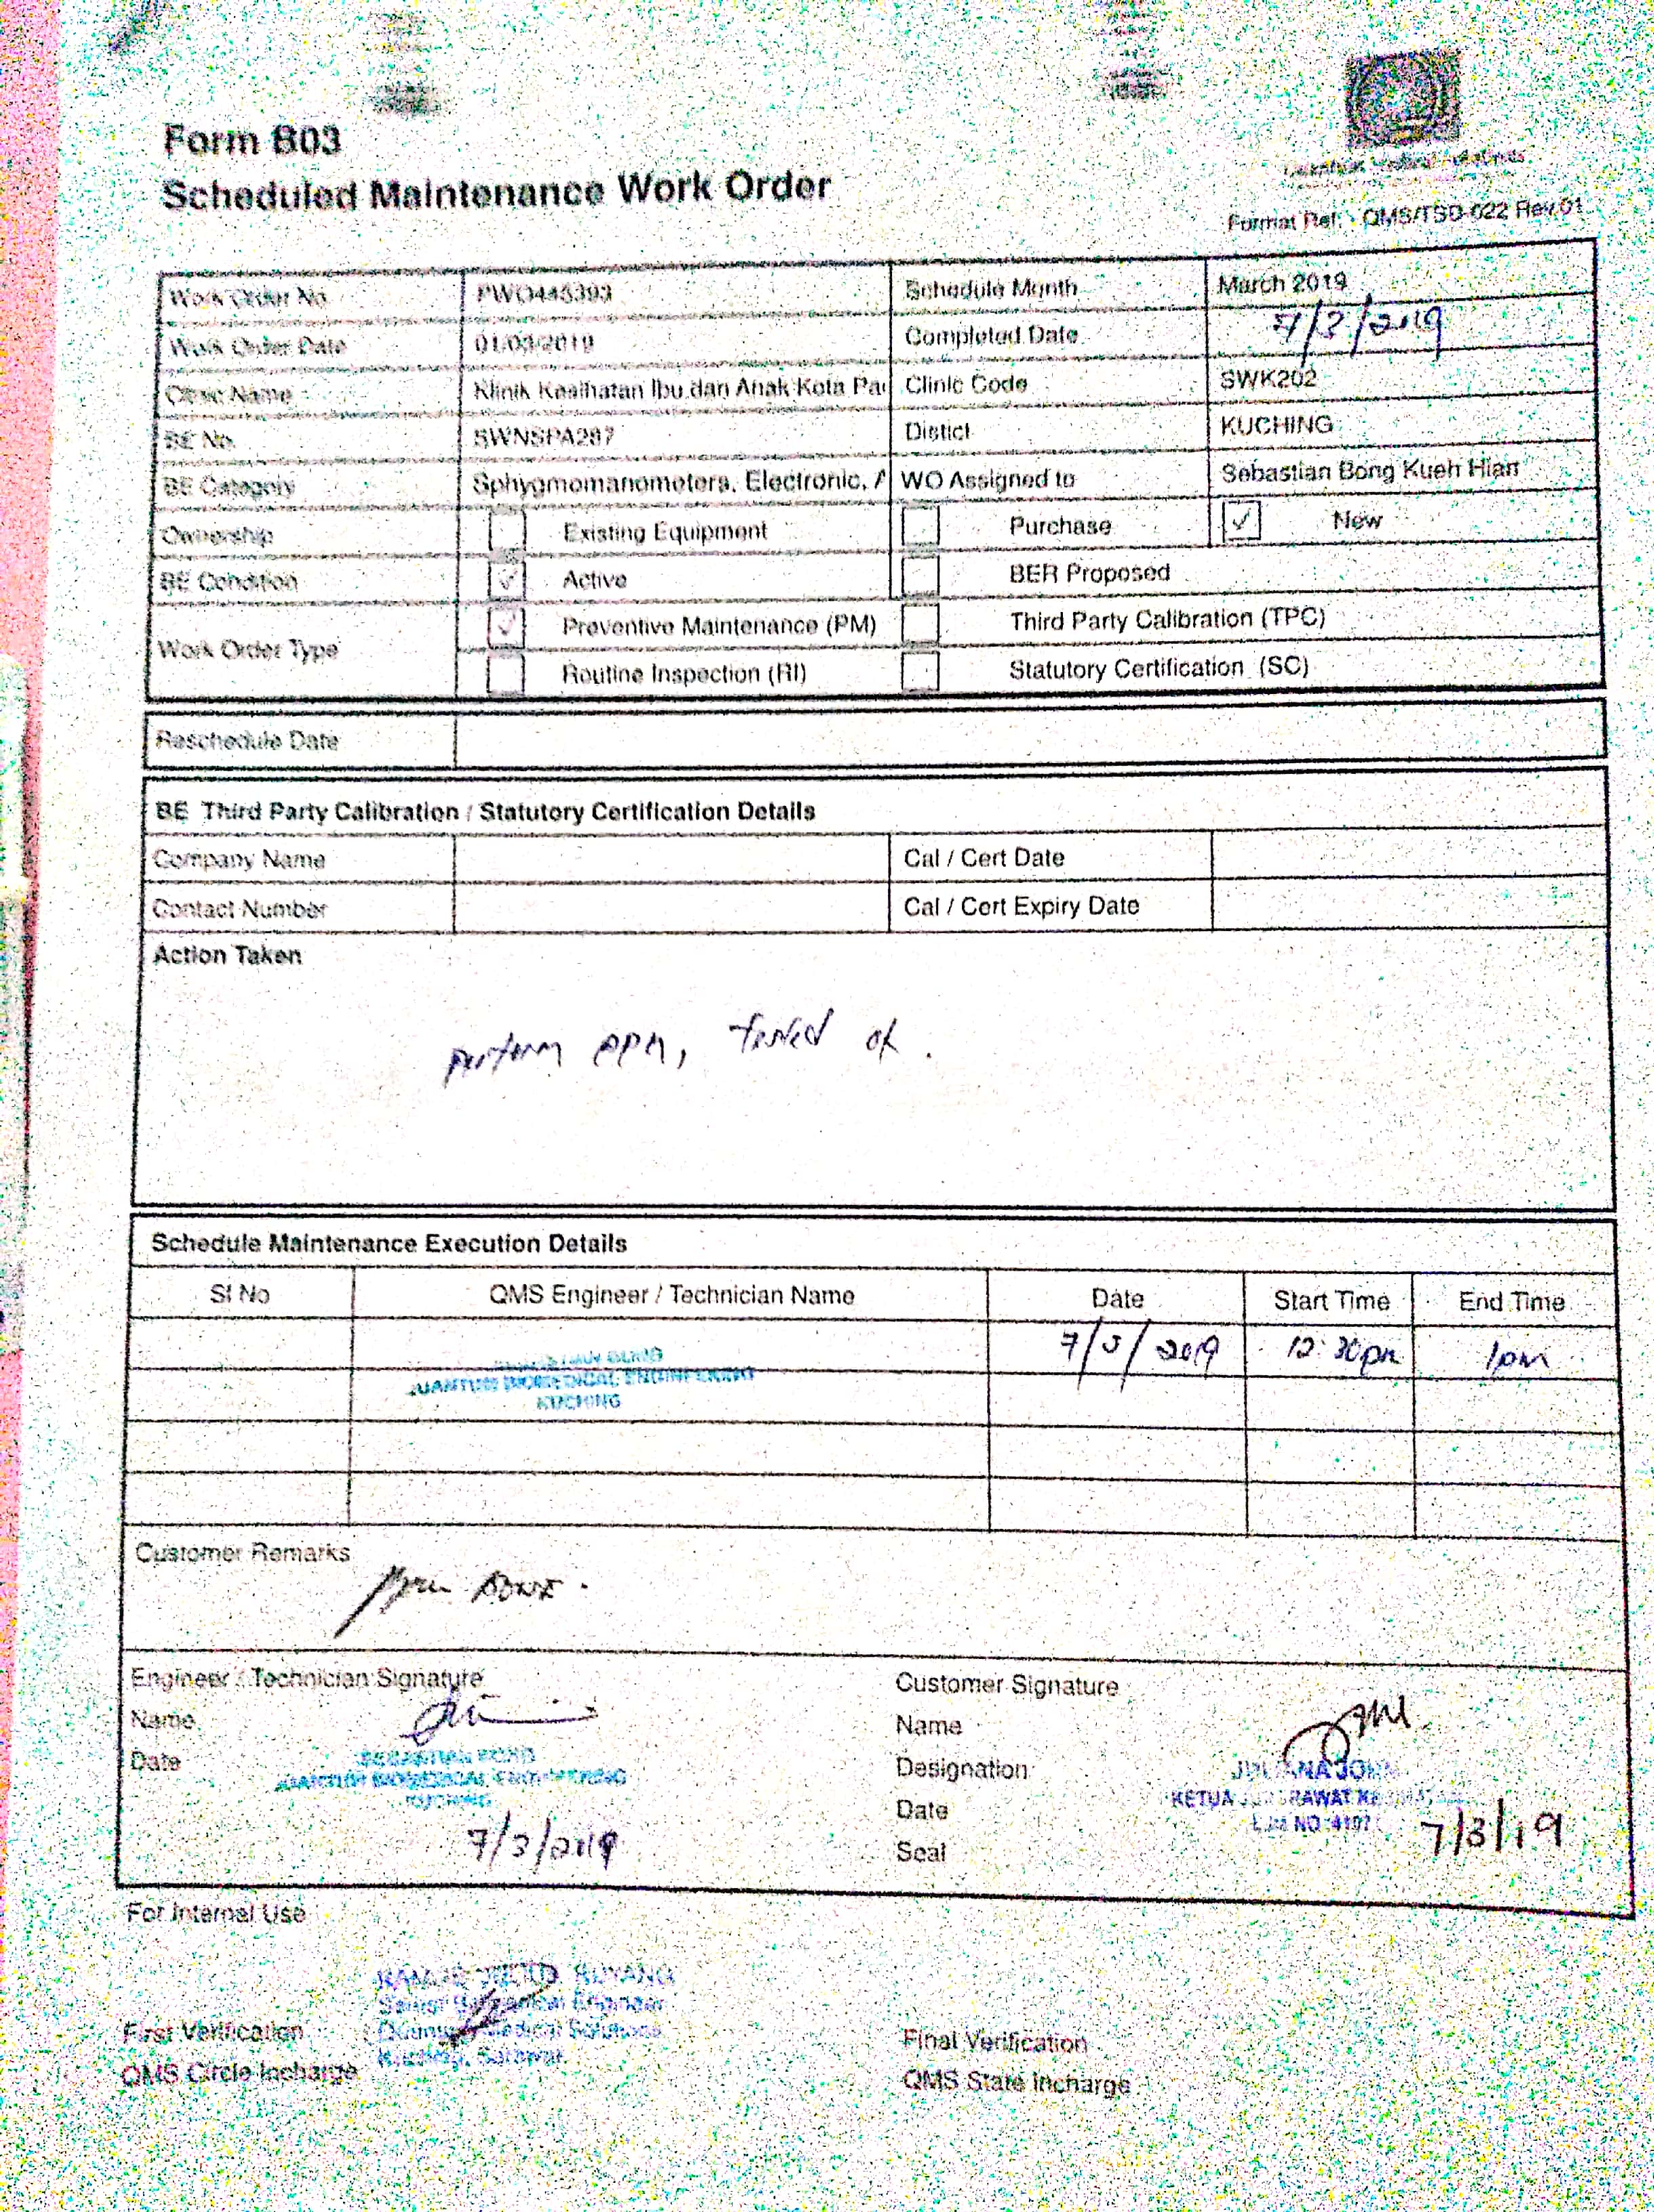 Form B03
Scheduled Maintenance Work Order
Format Ref. : QMS/TSD-022 Rev.01
Work Order No PWO445393 Schedule Month March 2019
Work Order Date 01/03/2019 Completed Date 7/3/2019
Clinic Name Klinik Kesihatan Ibu dan Anak Kota Clinic Code SWK202
BE No. SWNSPA287 Distict KUCHING
BE Category Sphygmomanometers, Electronic, A WO Assigned to Sebastian Bong Kueh Hian
Ownership Existing Equipment Purchase ✓ New
BE Condition ✓ Active BER Proposed
Work Order Type ✓ Preventive Maintenance (PM) Third Party Calibration (TPC)
Routine Inspection (RI) Statutory Certification (SC)
Reschedule Date
BE Third Party Calibration / Statutory Certification Details
Company Name Cal / Cert Date
Contact Number Cal / Cert Expiry Date
Action Taken
perform PPM, tested ok.
Schedule Maintenance Execution Details
Sl No QMS Engineer / Technician Name Date Start Time End Time
7/3/2019 12:30pm 1pm
QUANTUM BIOMEDICAL ENGINEERING
KUCHING
Customer Remarks
DONE.
Engineer / Technician Signature Customer Signature
Name Name
Date Designation
SEBASTIAN BONG
QUANTUM BIOMEDICAL ENGINEERING
KUCHING
JULIANA JOHN
KETUA
Date
7/3/2019 7/3/19
Seal
For Internal Use
Quantum Medical Solutions
Kuching, Sarawak
First Verification Final Verification
QMS Circle Incharge QMS State Incharge